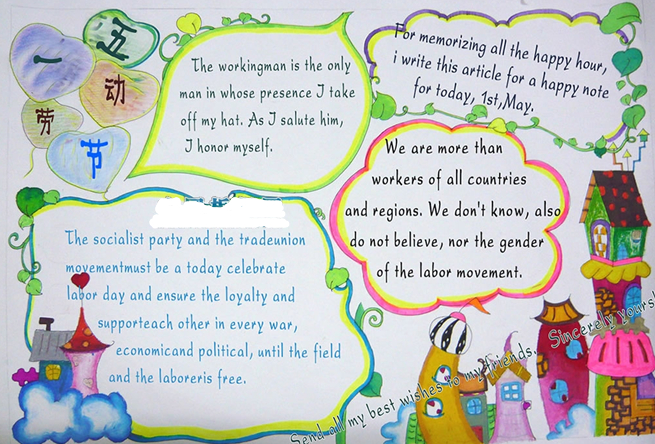 五一
劳动
节
The workingman is the only
man in whose presence I take
off my hat. As I salute him,
I honor myself.
For memorizing all the happy hour,
i write this article for a happy note
for today, 1st,May.
We are more than
workers of all countries
and regions. We don't know, also
do not believe, nor the gender
of the labor movement.
The socialist party and the tradeunion
movementmust be a today celebrate
labor day and ensure the loyalty and
supporteach other in every war,
economicand political, until the field
and the laboreris free.
Send all my best wishes to my friends. Sincerely yours!